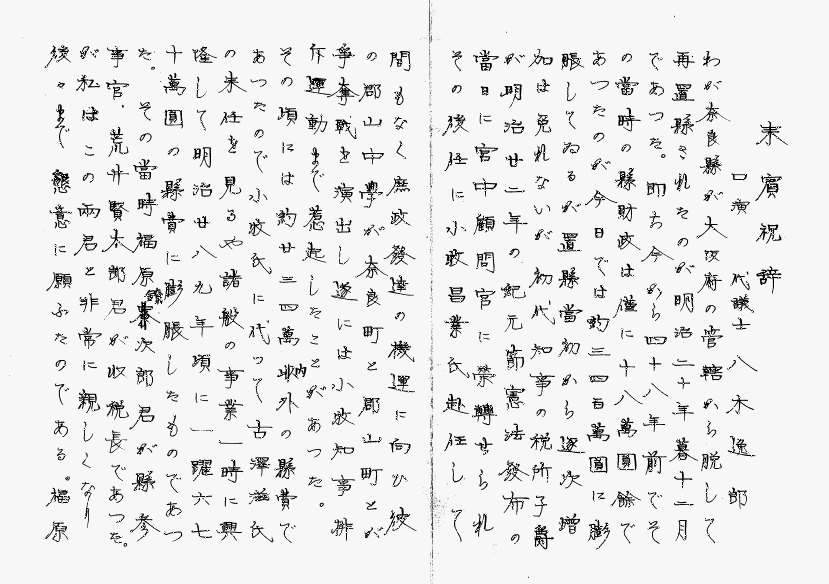 来賓祝辞
口演 代議士 八木逸郎
わが奈良縣が大阪府の管轄から脱して
再置縣されたのが明治二十年暮十二月
であつた。即ち今から四十八年前でそ
の當時の縣財政は僅に十八萬圓餘で
あつたのが今日では約三四百萬圓に膨
脹してゐるが置縣當初から逐次増
加は免れないが初代知事の税所子爵
が明治廿二年の紀元節憲法發布の
當日に宮中顧問官に榮轉せられ
その後任に小牧昌業氏赴任して
間もなく庶政發達の機運に向ひ彼
の郡山中學が奈良町と郡山町とが
爭奪戰を演出し遂には小牧知事排
斥運動まで惹起したことがあつた。
その頃には約廿三四萬圓内外の縣費で
あつたので小牧氏に代つて古澤滋氏
の来任を見るや諸般の事業一時に興
隆して明治廿八九年頃に一躍六七
十萬圓の縣費に膨脹したものであつ
た。その當時福原鐐次郎君が縣参
事官、荒井賢太郎君が収税長であつた。
が私はこの兩君と非常に親しくなり
後々まで懇意に願ふたのである。福原